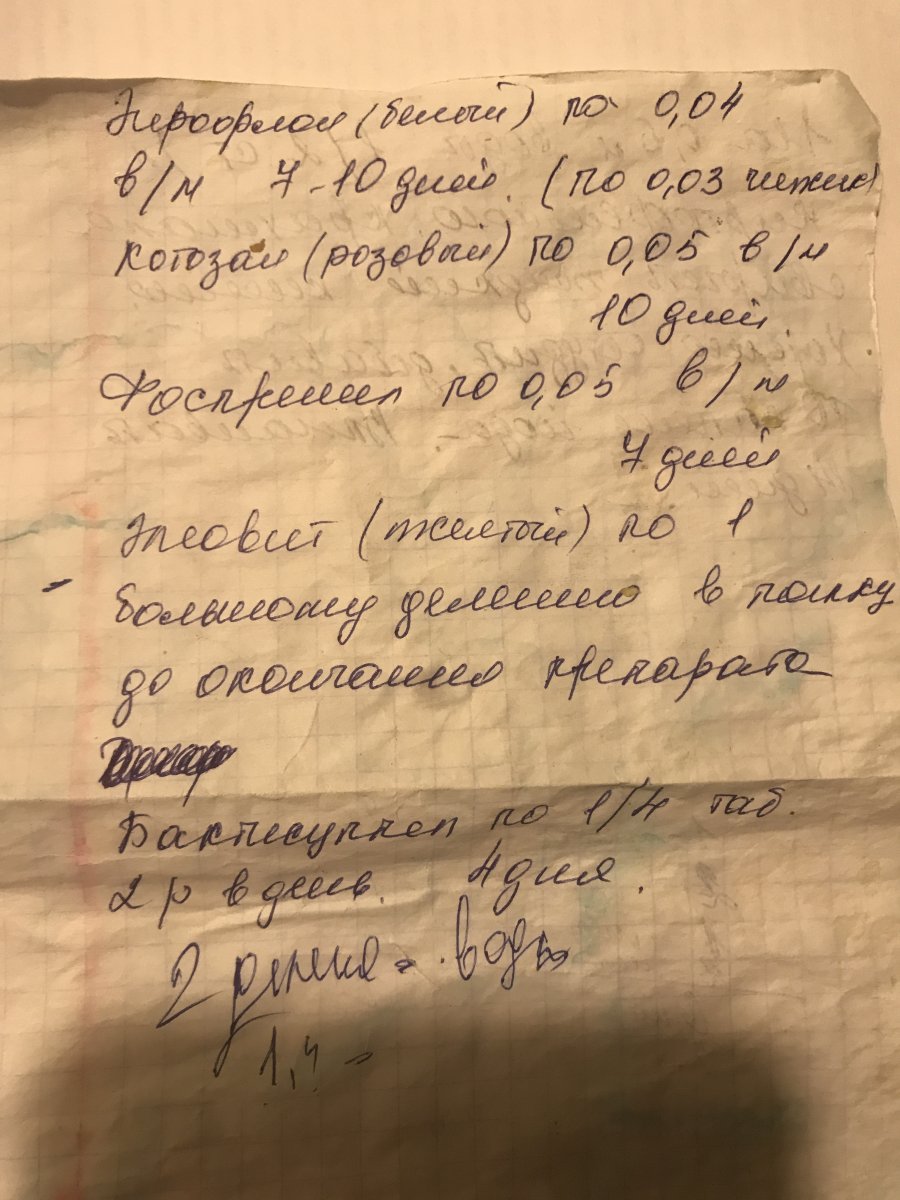 Энрофлон (белый) по 0,04
в/м 7-10 дней. (по 0,03 чижик)
Котозал (розовый) по 0,05 в/м
10 дней
Фоспренил по 0,05 в/м
7 дней
Элеовит (желтый) по 1
большому делению в попку
до окончания препарата
Бактисуптел по 1/4 таб.
2 р в день. 4 дня.
2 воды
1,4 -